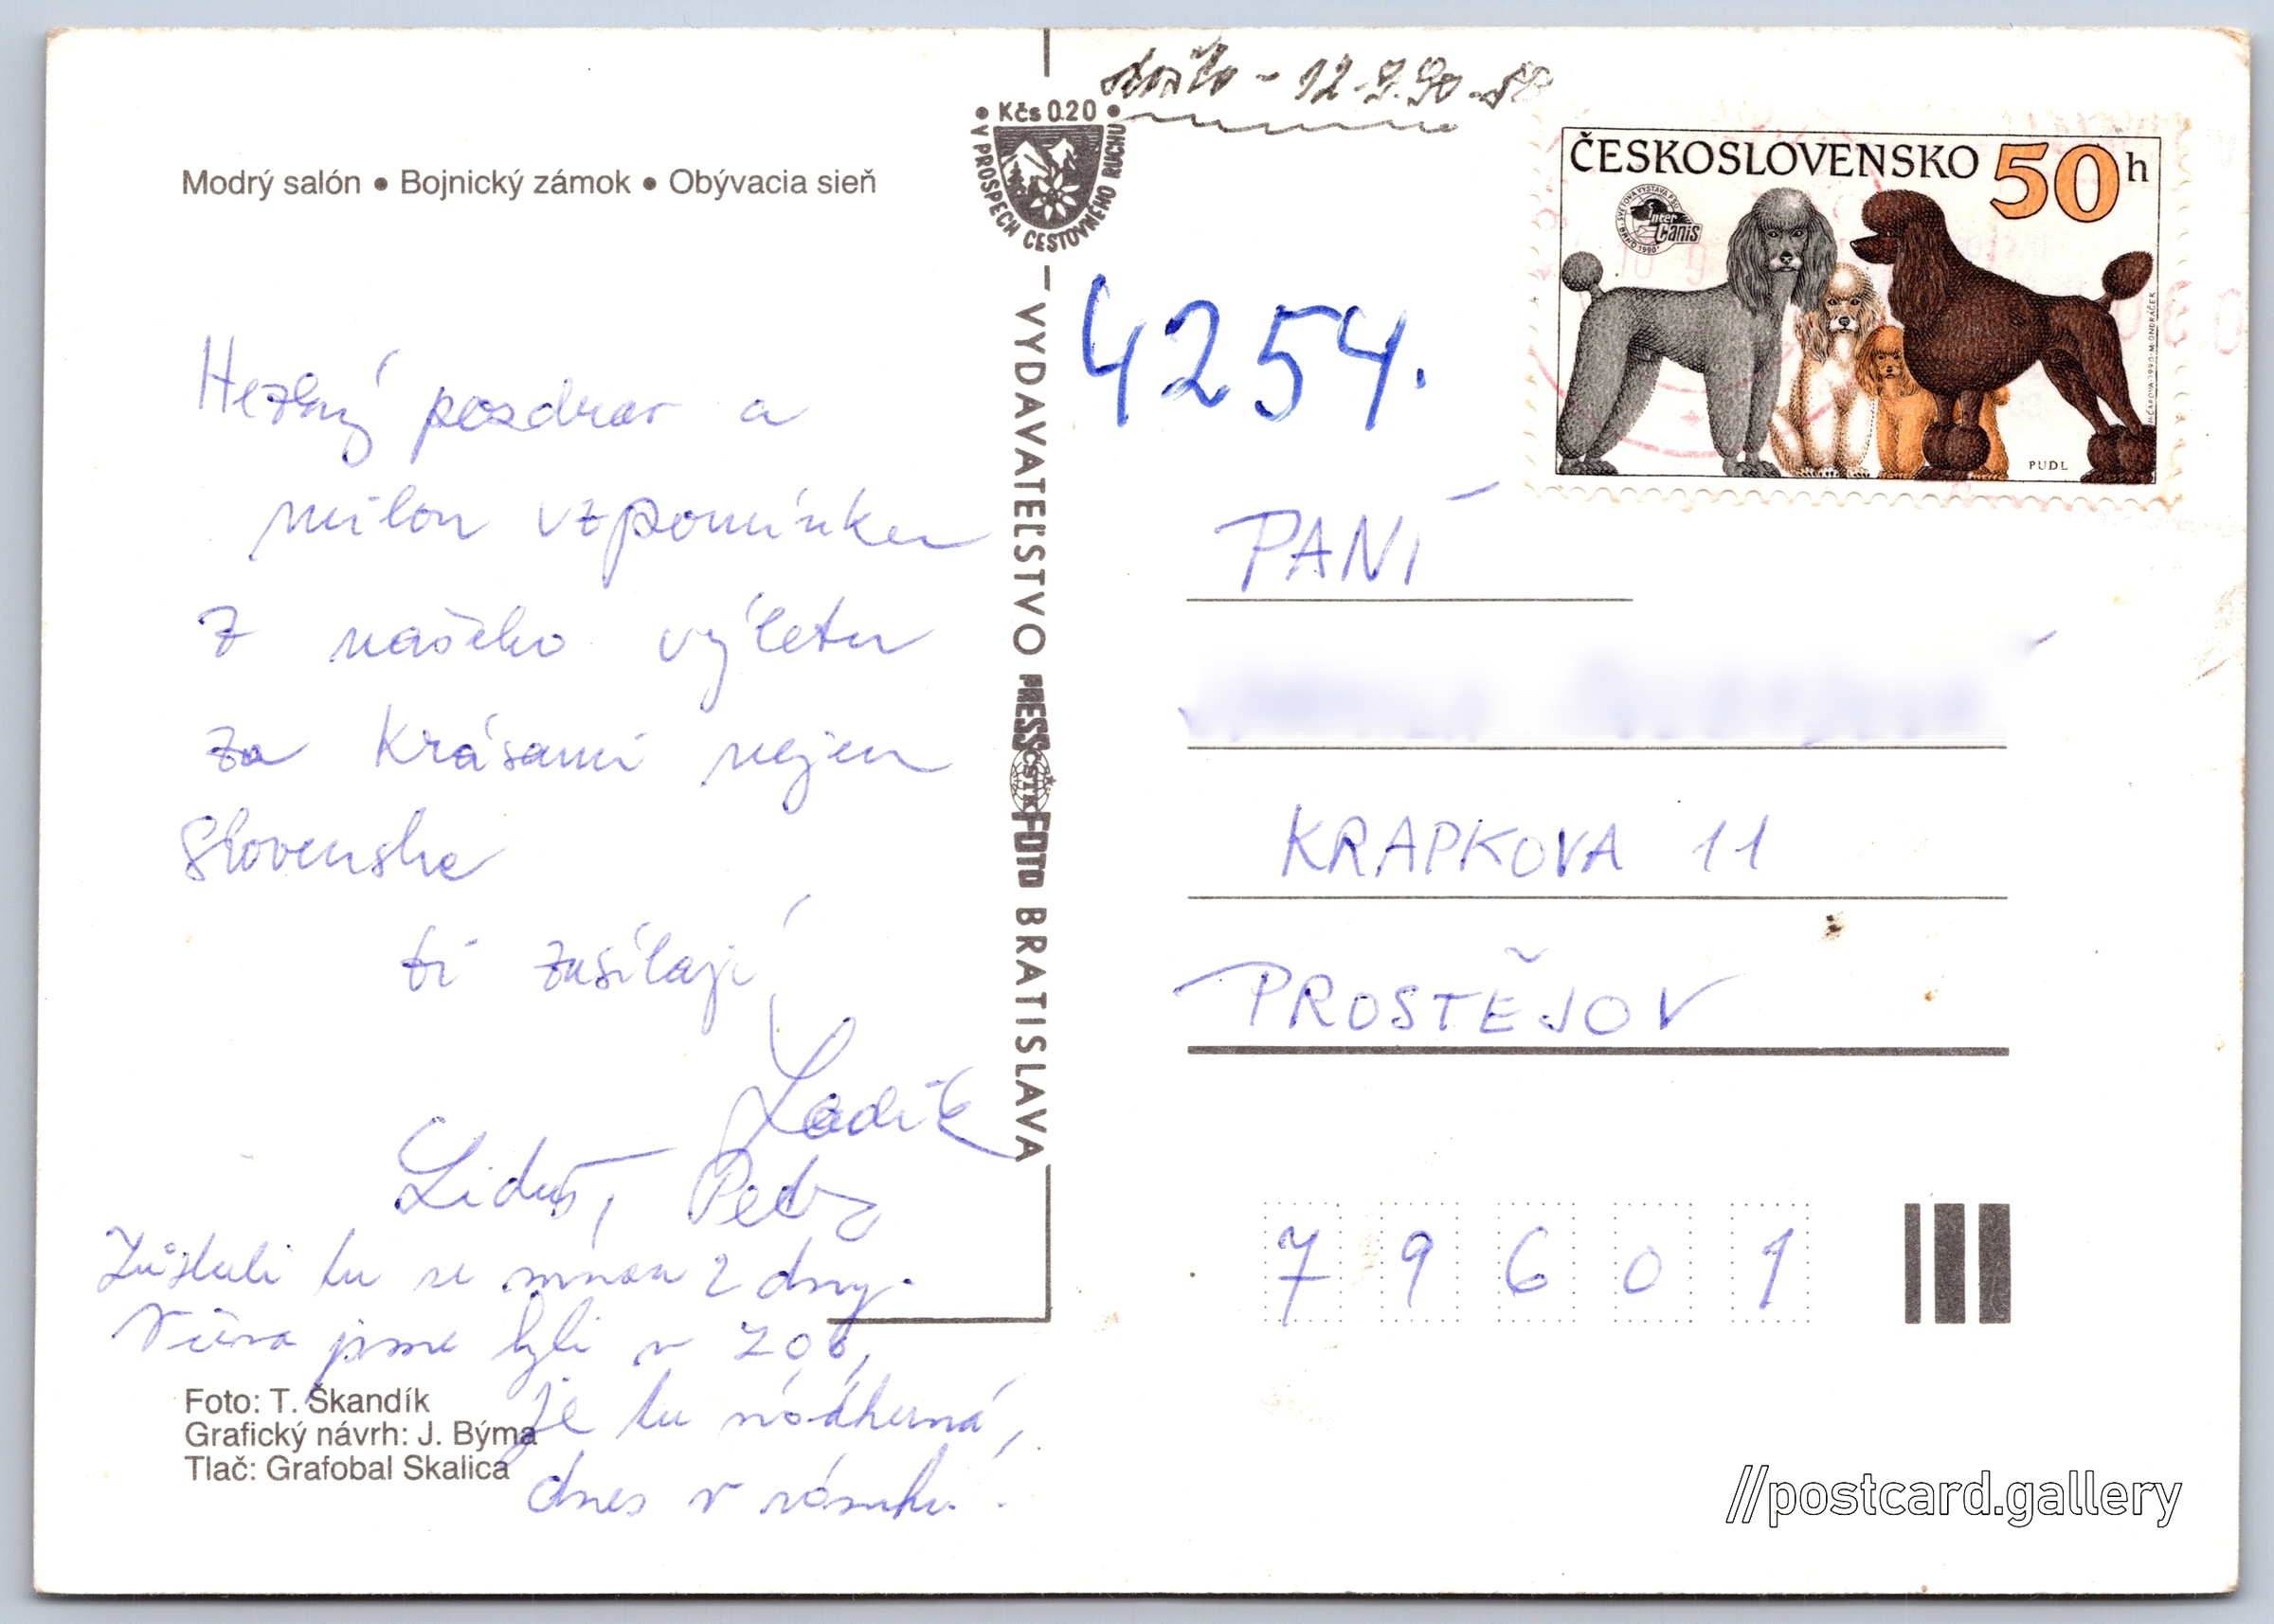 Modrý salón • Bojnický zámok • Obývacia sieň
Hezký pozdrav a
milou vzpomínku
z našeho výletu
za krásami nejen
Slovenska
ti zasílají
Ladík
Liduš, Petr
Zůstali tu se mnou 2 dny.
Včera jsme byli v ZOO,
je tu nádherná,
dnes v zámku.
Foto: T. Škandík
Grafický návrh: J. Býma
Tlač: Grafobal Skalica
• Kčs 0.20 •
V PROSPECH CESTOVNÉHO RUCHU
VYDAVATEĽSTVO PRESSFOTO BRATISLAVA
ČSTK
došlo - 12.9.90.
4254.
ČESKOSLOVENSKO 50 h
SVĚTOVÁ VÝSTAVA PSŮ
Inter Canis
BRNO 1990
PUDL
PANÍ
KRAPKOVA 11
PROSTĚJOV
79601
//postcard.gallery